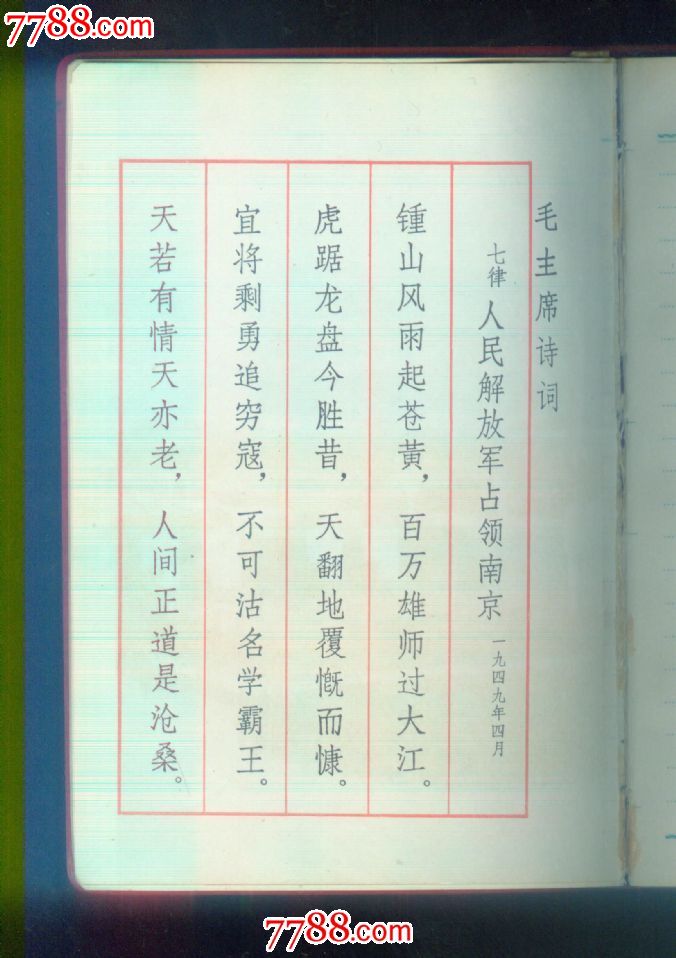 7788.com
7788.com
毛主席诗词
七律 人民解放军占领南京 一九四九年四月
锺山风雨起苍黄，百万雄师过大江。
虎踞龙盘今胜昔，天翻地覆慨而慷。
宜将剩勇追穷寇，不可沽名学霸王。
天若有情天亦老，人间正道是沧桑。
7788.com